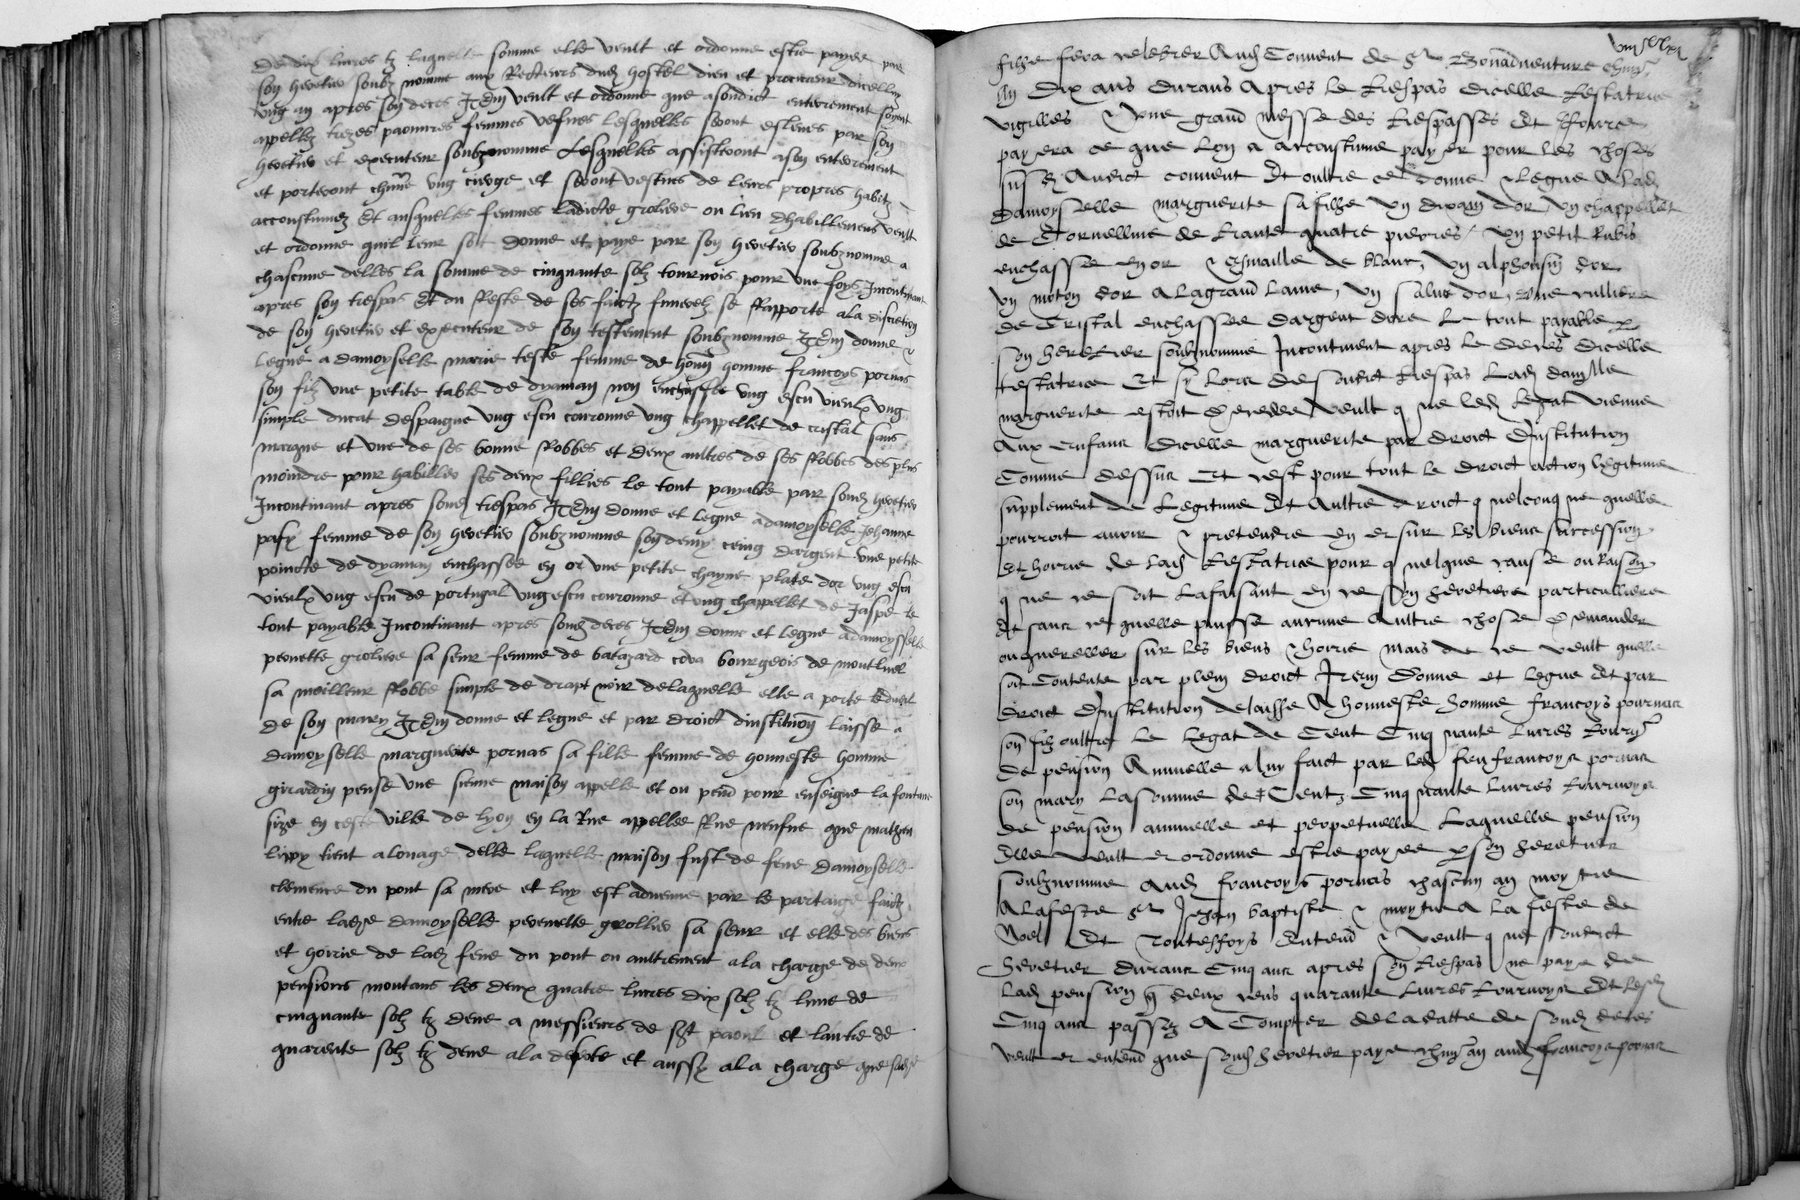 De dix livres tz laquelle somme elle veult et ordonne estre payee par
son heretier soubz nomme aux Recteurs dud hostel dieu et procureur dicelluy
ung an apres son deces Item veult et ordonne que a sondict enterrement soyent
appellez treze paouvres femmes vefves lesquelles seront esleues par son
heretier et executeur soubznomme Lesquelles assisteront a son enterrement
et porteront chune ung cierge et seront vestues de leurs propres habitz
accoustumez Et ausquelles femmes ladicte groliere ou lieu dhabillemens veult
et ordonne quil leur soit donne et paye par son heretier soubznomme a
chascune delles la somme de cinquante solz tournois pour une foys Incontinant
apres son trespas Et du Reste de ses faictz funerelz se Rapporte a la discretion
de son heretier et executeur de son testement soubznomme Item donne et
legue a damoyselle marie teste femme de homme francoys pornas
son filz une petite table de dyaman non enchassee ung escu vieulx ung
simple ducat despaigne ung escu couronne ung chappellet de cristal sans
marque et une de ses bonne Robbes et deux aultres de ses Robbes des plus
moindre pour habiller ses deux fillies le tout payable par sond heretier
Incontinant apres sond trespas Item donne et legue a damoyselle Jehanne
pafy femme de son heretier soubznomme son demy ceing dargent une petite
poincte de dyaman enchassee en or une petite chayne plate dor ung escu
vieulx ung escu de portugal ung escu couronne et ung chappellet de Jaspe le
tout payable Incontinant apres sond deces Item donne et legue a damoyselle
pernette groliere sa seur femme de batazard cova bourgeois de montluel
sa meilleur Robbe simple de drapt noir de laquelle elle a porte le dueil
de son mary Item donne et legue et par droict dinstitution laisse a
damoyselle marguerite pornas sa fille femme de honneste homme
girardin pense une sienne maison appelle et ou pend pour enseigne la fontaine
size en ceste ville de lyon en la Rue appellee Rue neufve que mathieu
lippy tient a louage delle laquelle maison fust de feue damoyselle
clemence du pont sa mere et luy est advenue par le partaige faictz
entre ladze damoyselle pernette grollier sa seur et elle des biens
et horrie de lad feue du pont ou aultrement a la charge de deux
pensions montans les deux quatre livres dix solz tz lune de
cinquante solz tz deue a messieurs de st paoul et lautre de
quarente solz tz deue a la et aussy a la charge que sad
fille fera celebrer Aud Convent de st Bonadventure chun
an Dix ans durans Apres le trespas dicelle testatrice
vigilles & une grand messe des trespasses Et
payera ce que lon a accoustume payer pour les choses
susd Audict convent Et oultre ce donne & legue A lad
damoyselle marguerite sa fille un dixain dor un chappellet
de Cornelline de trante quatre pierres / un petit Rubis
enchasse en or & esmaille de blanc, un alphonsin dor
un moton dor a la grand laine, un salut dor, une culliere
de Cristal enchassee dargent dore Le tout payable par
son heretier soubznomme Incontinent apres le deces dicelle
testatrice Et sy lors de sondict trespas Lad damlle
marguerite estoit decedee veult que led legat vienne
Aux enfans dicelle marguerite par droict dInstitution
Comme dessus Et cest pour tout le droict action legitime
supplement de legitime Et Aultre droict quelconque quelle
pourroit avoir & pretendre en et sur les biens succession
et horrie de lad testatrice pour quelque cause ou Raison
que ce soit La faisant en ce son heretiere particulliere
Et sans ce quelle puisse aucune Aultre chose demander
ou quereller sur les biens & horrie mais de ce veult quelle
soit Contente par plein droict Item Donne et legue Et par
droict dInstitution delaisse A honneste homme francoys pournas
son filz oultre le legat de Cent Cinquante livres tourn
de pension Annuelle a luy faict par led feu francoys pornas
son mary La somme de Cent Cinquante livres tournoys
de pension annuelle et perpetuelle Laquelle pension
Elle veult et ordonne estre payee par son heretier
soubznomme Aud francoys pornas chascun an moytie
A la feste st Jehan baptiste & moytie A la feste de
Noel Et Toutesfoys Entend & veult que sondict
heretier durans Cinq ans apres son trespas ne paye de
lad pension que deux cens quarante livres tournoys Et lesd
Cinq ans passez A Compter de la datte de sond deces
veult et entend que sond heretier paye chun an aud francoys pornas